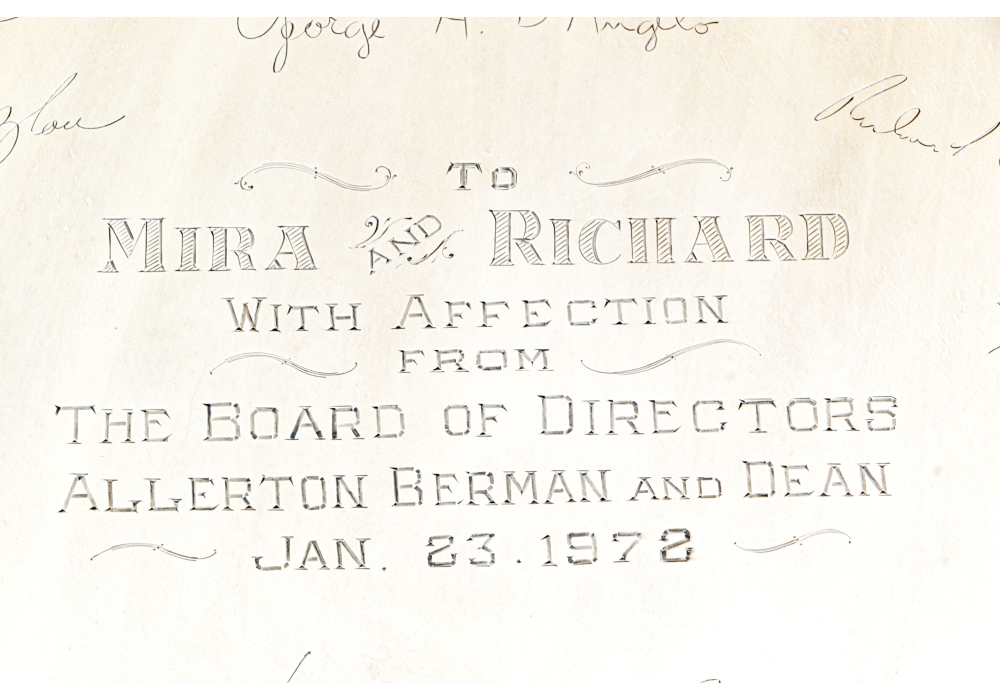 George A. D'Angelo
Blau
Richard
To
MIRA AND RICHARD
WITH AFFECTION
FROM
THE BOARD OF DIRECTORS
ALLERTON BERMAN AND DEAN
JAN. 23. 1972